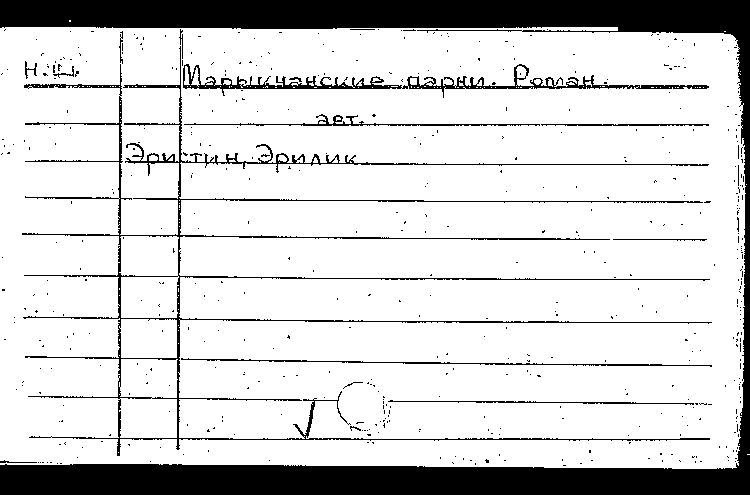 Н.Ш. Марыкчанские парни. Роман.
авт.:
Эристин, Эрилик